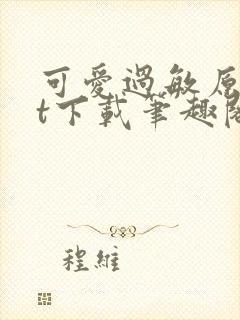 可愛過敏原
t下載筆趣閣
程維